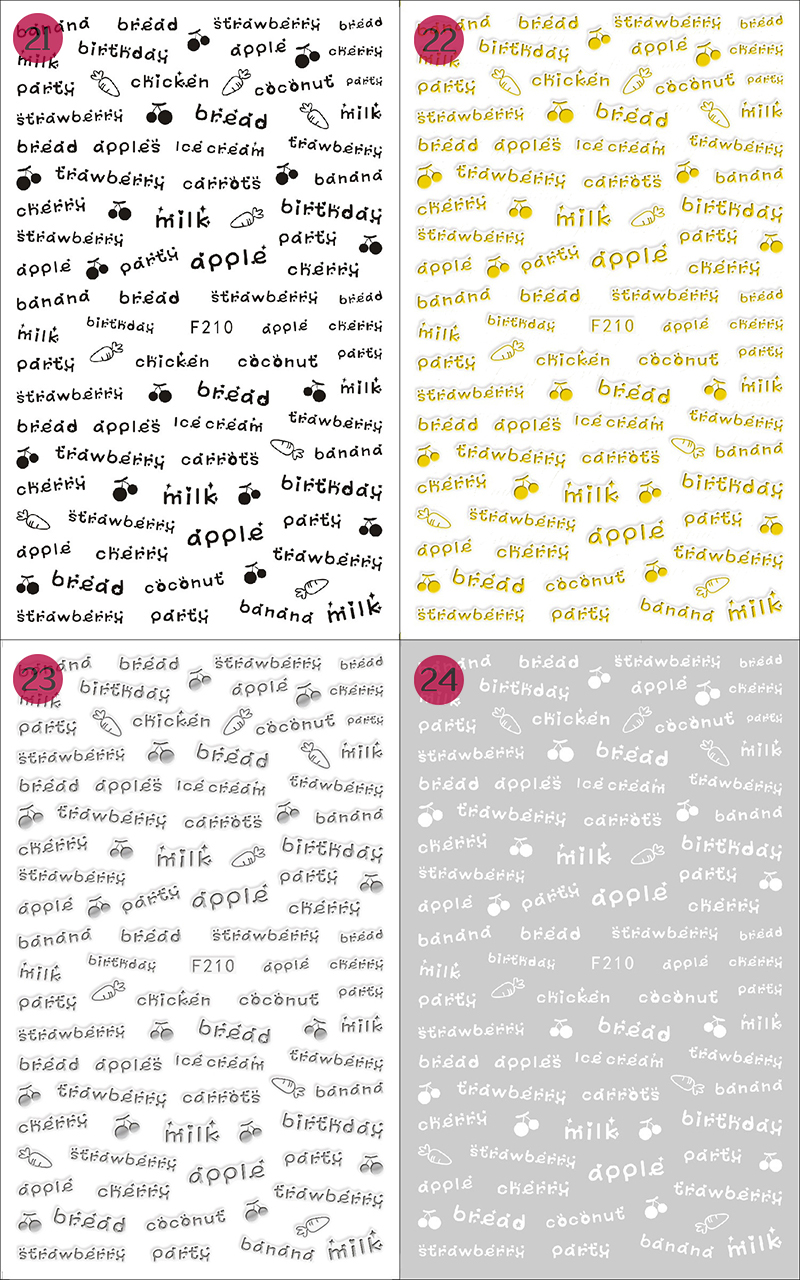 21
banana bread strawberry bread
milk birthday apple cherry
party chicken coconut party
strawberry bread milk
bread apples Ice cream trawberry
trawberry carrots banana
cherry milk birthday
strawberry party
apple party apple cherry
banana bread strawberry bread
milk birthday F210 apple cherry
party chicken coconut party
strawberry bread milk
bread apples Ice cream trawberry
trawberry carrots banana
cherry milk birthday
strawberry apple party
apple cherry trawberry
bread coconut
strawberry party banana milk
22
banana bread strawberry bread
milk birthday apple cherry
party chicken coconut party
strawberry bread milk
bread apples Ice cream trawberry
trawberry carrots banana
cherry milk birthday
strawberry party
apple party apple cherry
banana bread strawberry bread
milk birthday F210 apple cherry
party chicken coconut party
strawberry bread milk
bread apples Ice cream trawberry
trawberry carrots banana
cherry milk birthday
strawberry apple party
apple cherry trawberry
bread coconut
strawberry party banana milk
23
banana bread strawberry bread
milk birthday apple cherry
party chicken coconut party
strawberry bread milk
bread apples Ice cream trawberry
trawberry carrots banana
cherry milk birthday
strawberry party
apple party apple cherry
banana bread strawberry bread
milk birthday F210 apple cherry
party chicken coconut party
strawberry bread milk
bread apples Ice cream trawberry
trawberry carrots banana
cherry milk birthday
strawberry apple party
apple cherry trawberry
bread coconut
strawberry party banana milk
24
banana bread strawberry bread
milk birthday apple cherry
party chicken coconut party
strawberry bread milk
bread apples Ice cream trawberry
trawberry carrots banana
cherry milk birthday
strawberry party
apple party apple cherry
banana bread strawberry bread
milk birthday F210 apple cherry
party chicken coconut party
strawberry bread milk
bread apples Ice cream trawberry
trawberry carrots banana
cherry milk birthday
strawberry apple party
apple cherry trawberry
bread coconut
strawberry party banana milk